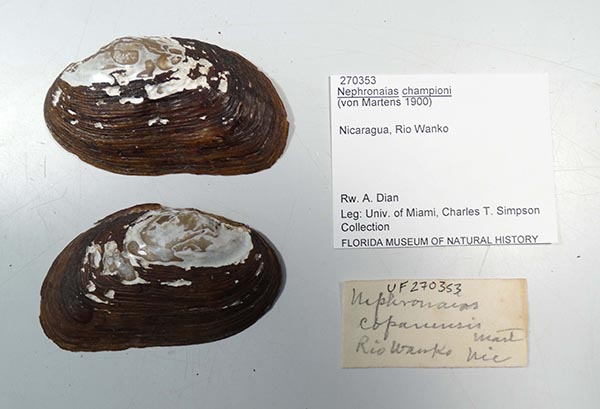 270353
Nephronaias championi
(von Martens 1900)
Nicaragua, Rio Wanko
Rw. A. Dian
Leg: Univ. of Miami, Charles T. Simpson
Collection
FLORIDA MUSEUM OF NATURAL HISTORY
UF270353
Nephronaias
copanensis
Mart
Rio Wanko Nic